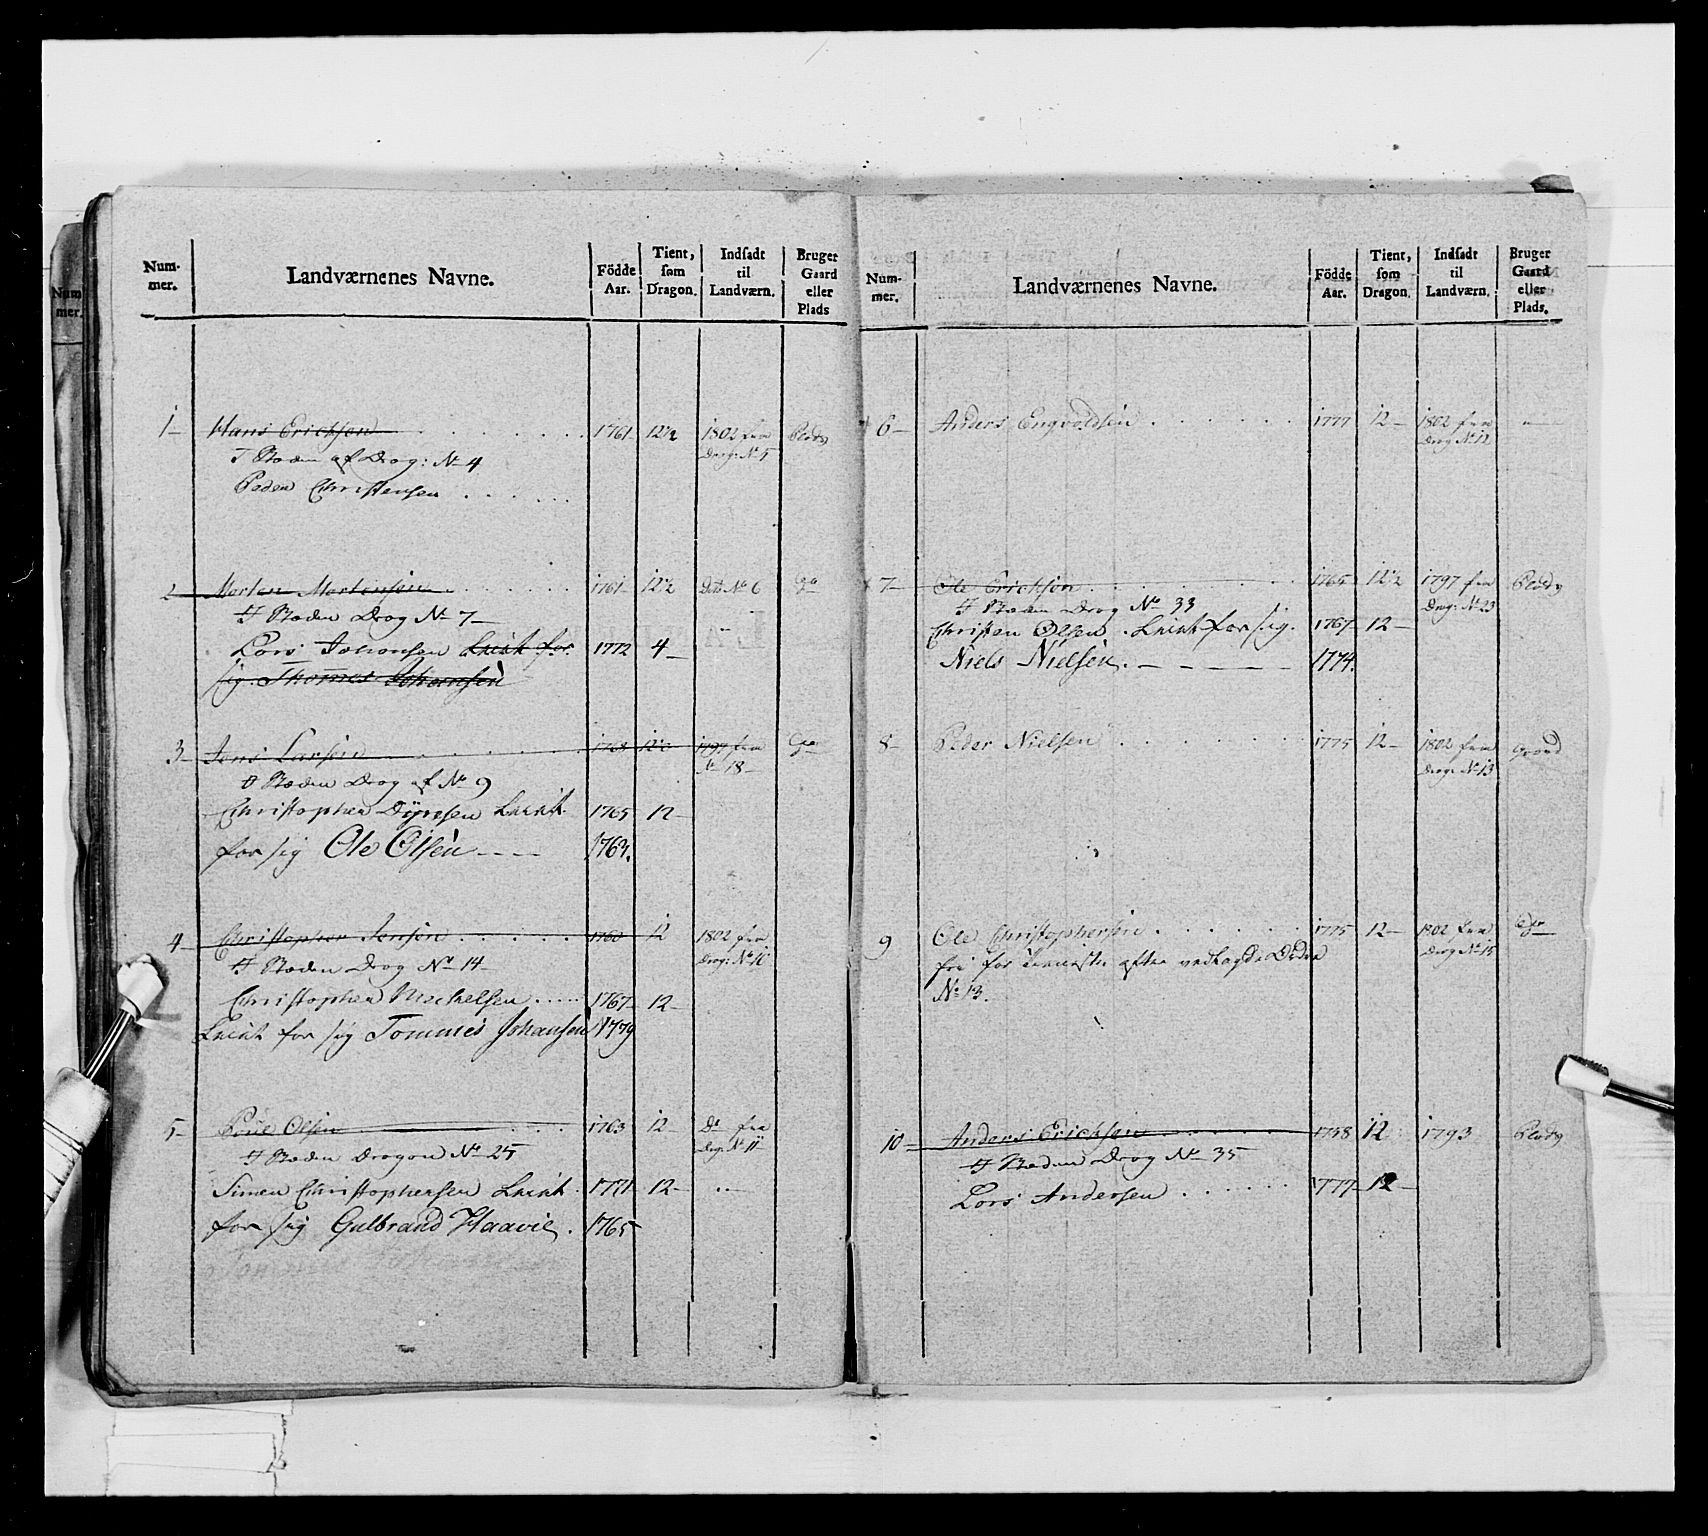 Num-
mer.
Landværnenes Navne.
Födde
Aar.
Tient,
som
Dragon.
Indsadt
til
Landværn.
Bruger
Gaard
eller
Plads
1 Hans Erichsen 1761 12½ 1802 fra Plads
Drag: No 5
I Stæden af Drag: No 4
Peder Christensen
2 Morten Mortensen 1761 12½ Dito No 6 Do
I Stæden Drag No 7
Lars Johansen 1772 4
sig. Thomes Johansen
3 Jens Larsen 1763 12½ 1797 fra Do
No 18
I Stæden Drag af No 9
Christopher 1765 12
for sig Ole Olsen 1763.
4 Christopher Jensen 1760 12 1802 fra
Drag: No 10
I Stæden Drag No 14
Christopher Michelsen 1767 12
for sig Tommes Johansen 1779
5 Poul Olsen 1763 12 Do fra
Drag: No 11
I Stæden Dragon No 25
Simen Christophersen 1771 12
for sig Gulbrand Haavie. 1765
Num
mer.
Num-
mer.
Landværnenes Navne.
Födde
Aar.
Tient,
som
Dragon.
Indsadt
til
Landværn.
Bruger
Gaard
eller
Plads.
6 Anders Engvoldsen 1777 12 1802 fra
Drag No 12
7 Ole Erichsen 1765 12½ 1797 fra Plads
Drag: No 23
I Stæden Drag No 33
Christen Olsen for sig. 1767 12
Niels Nielsen. 1774.
8 Peder Nielsen 1775 12 1802 fra Gaard
Drag: No 13
9 Ole Christophersen 1775 12 1802 fra Do
Drag No 15
fri for efter vedlagde
No 13.
10 Anders Erichsen 1758 12 1793 Plads
I Stæden Drag No 35
Lars Andersen 1777 12